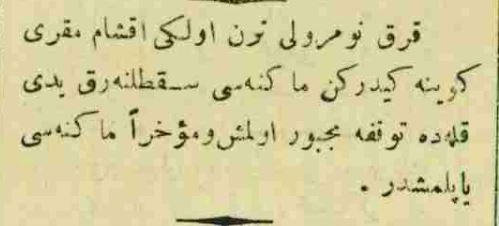 قرق نومرولی ترن اولكی اقشام مقری
كوینه كیدركن ماكنه‌سی سقطلنه‌رق یدی
قله‌ده توقفه مجبور اولمش ومؤخراً ماكنه‌سی
یاپلمشدر .